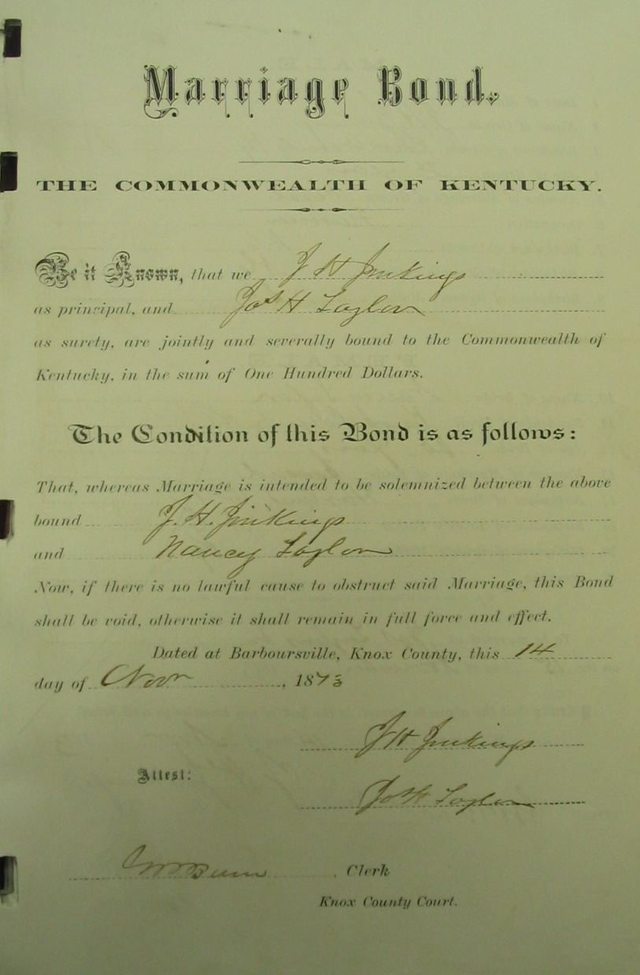 Marriage Bond.
THE COMMONWEALTH OF KENTUCKY.
Be it Known, that we J H Jinkings
as principal, and Jos H Taylor
as surety, are jointly and severally bound to the Commonwealth of
Kentucky, in the sum of One Hundred Dollars.
The Condition of this Bond is as follows:
That, whereas Marriage is intended to be solemnized between the above
bound J. H. Jinkings
and Nancy Taylor
Now, if there is no lawful cause to obstruct said Marriage, this Bond
shall be void, otherwise it shall remain in full force and effect.
Dated at Barboursville, Knox County, this 14
day of Novr, 1873
J H Jinkings
Attest:
Jos H Taylor
Clerk
Knox County Court.